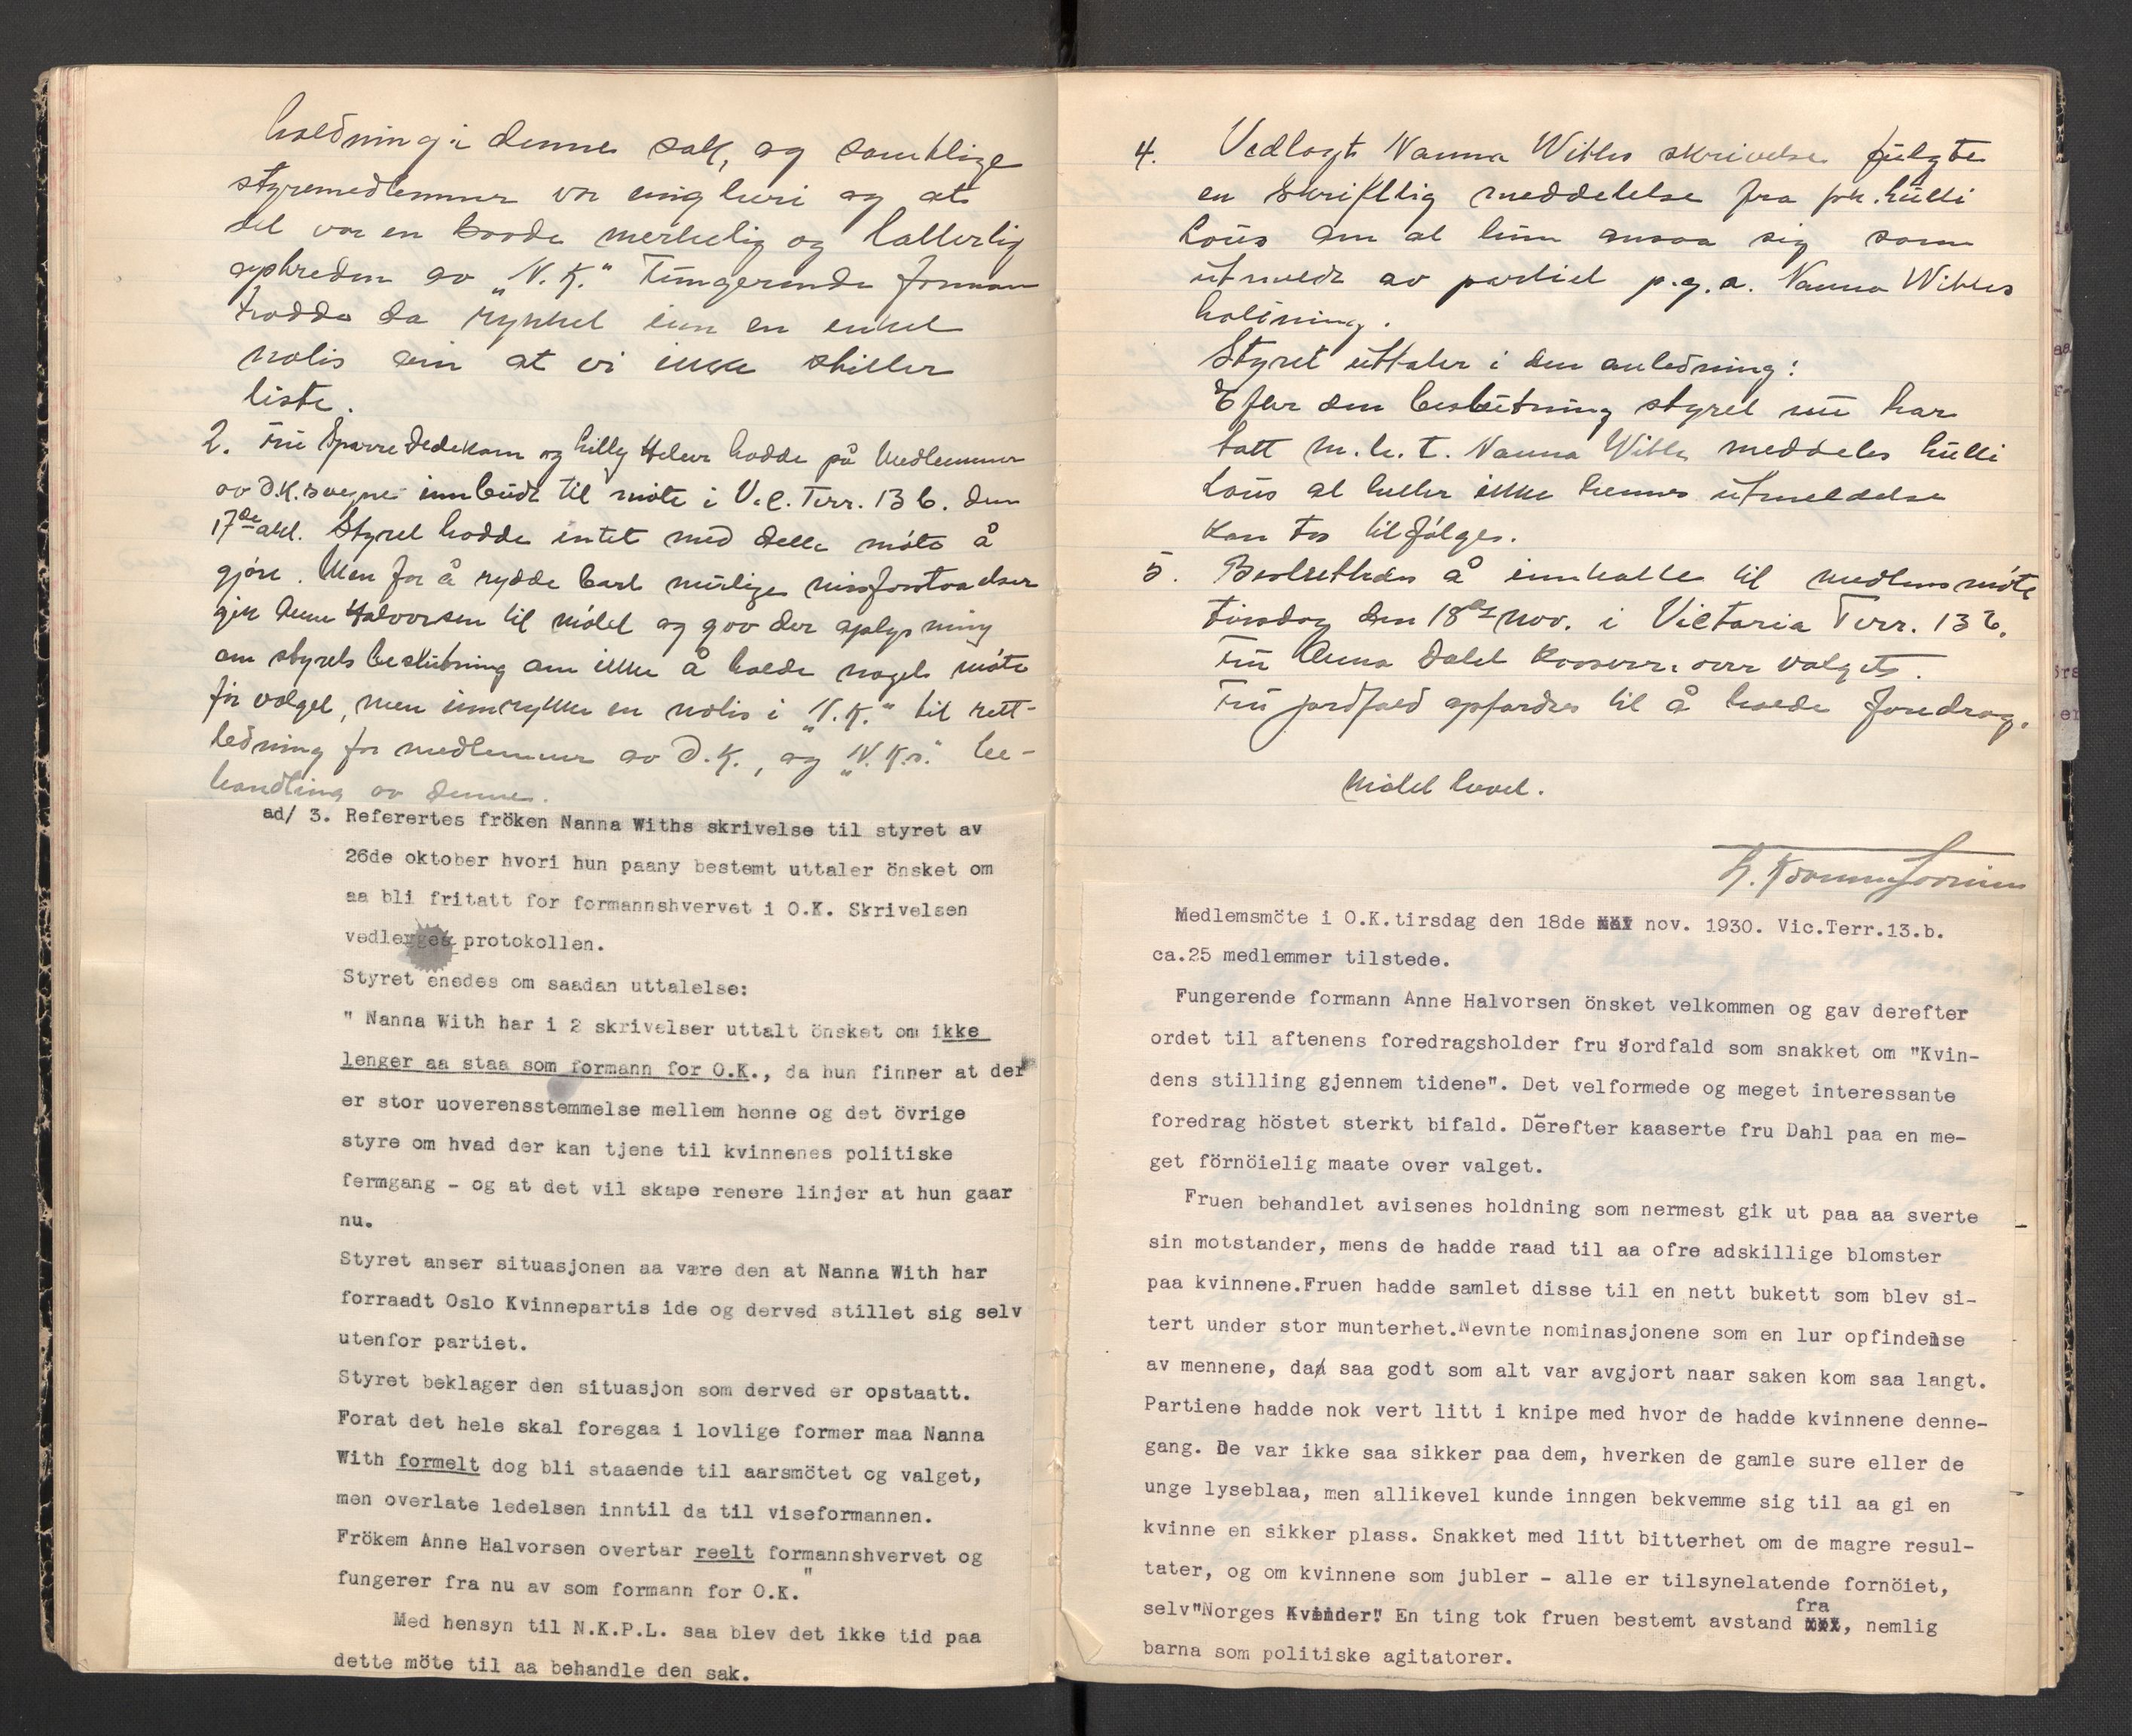 holdning i denne sak, og samtlige
styremedlemmer var enig heri og at
det var en baade merkelig og latterlig
optreden av "N.K." Fungerende formann
hadde da rykket inn en enkel
notis om at vi ikke stiller
liste.
2. Fru Sparre Dedekam og Lilly Heber hadde på Medlemmer
av O.K.s vegne innbudt til möte i Vic. Terr. 13 b. den
17de okt. Styret hadde intet med dette möte å
gjöre. Men for å rydde bort mulige missforstaaelser
gik Anne Halvorsen til mötet og gav der oplysning
om styrets beslutning om ikke å holde noget möte
för valget, men innrykke en notis i "N.K." til rett-
ledning for medlemmer av O.K., og "N.K.s." be-
handling av denne.
ad/ 3. Referertes fröken Nanna Withs skrivelse til styret av
26de oktober hvori hun paany bestemt uttaler önsket om
aa bli fritatt for formannshvervet i O.K. Skrivelsen
vedlegges protokollen.
Styret enedes om saadan uttalelse:
" Nanna With har i 2 skrivelser uttalt önsket om ikke
lenger aa staa som formann for O.K., da hun finner at der
er stor uoverensstemmelse mellem henne og det övrige
styre om hvad der kan tjene til kvinnenes politiske
fermgang - og at det vil skape renere linjer at hun gaar
nu.
Styret anser situasjonen aa være den at Nanna With har
forraadt Oslo Kvinnepartis ide og derved stillet sig selv
utenfor partiet.
Styret beklager den situasjon som derved er opstaatt.
Forat det hele skal foregaa i lovlige former maa Nanna
With formelt dog bli staaende til aarsmötet og valget,
men overlate ledelsen inntil da til viseformannen.
Frökem Anne Halvorsen overtar reelt formannshvervet og
fungerer fra nu av som formann for O.K."
Med hensyn til N.K.P.L. saa blev det ikke tid paa
dette möte til aa behandle den sak.
4. Vedlagt Nanna Withs skrivelse fulgte
en skriftlig meddelelse fra frk. Lulli
Lous om at hun ansaa sig som
utmeldt av partiet p.g.a. Nanna Withs
holdning.
Styret uttaler i den anledning:
Efter den beslutning styret nu har
tatt m.h.t. Nanna With meddeles Lulli
Lous at heller ikke hennes utmeldelse
kan tas tilfölge.
5. Besluttedes å innkalle til medlemsmöte
tirsdag den 18de nov. i Victoria Terr. 13 b.
Fru Anna Dahl kaaserer over valget.
Fru Jordfald opfordres til å holde foredrag.
Mötet hevet.
Medlemsmöte i O.K.tirsdag den 18de nov. 1930. Vic.Terr.13.b.
ca.25 medlemmer tilstede.
Fungerende formann Anne Halvorsen önsket velkommen og gav derefter
ordet til aftenens foredragsholder fru Jordfald som snakket om "Kvin-
dens stilling gjennem tidene". Det velformede og meget interessante
foredrag höstet sterkt bifald. Derefter kaaserte fru Dahl paa en me-
get förnöielig maate over valget.
Fruen behandlet avisenes holdning som nermest gik ut paa aa sverte
sin motstander, mens de hadde raad til aa ofre adskillige blomster
paa kvinnene.Fruen hadde samlet disse til en nett bukett som blev si-
tert under stor munterhet.Nevnte nominasjonene som en lur opfindelse
av mennene, da saa godt som alt var avgjort naar saken kom saa langt.
Partiene hadde nok vert litt i knipe med hvor de hadde kvinnene denne-
gang. De var ikke saa sikker paa dem, hverken de gamle sure eller de
unge lyseblaa, men allikevel kunde inngen bekvemme sig til aa gi en
kvinne en sikker plass. Snakket med litt bitterhet om de magre resul-
tater, og om kvinnene som jubler - alle er tilsynelatende fornöiet,
selv"Norges Kvinder". En ting tok fruen bestemt avstand fra, nemlig
barna som politiske agitatorer.